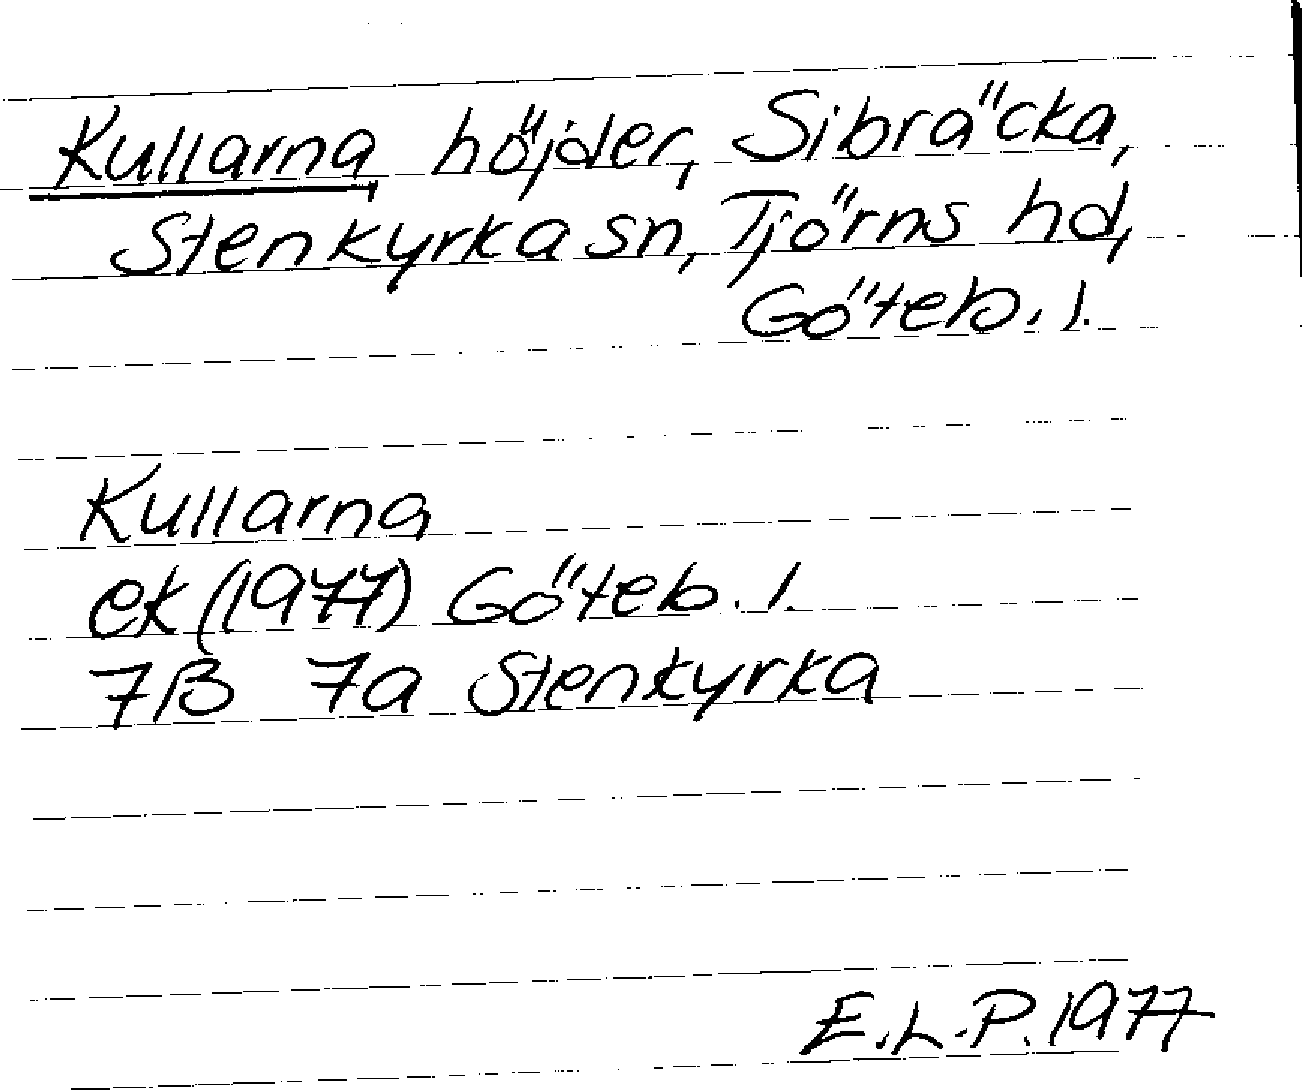 Kullarna, höjder, Sibräcka,
Stenkyrka sn, Tjörns hd,
Göteb. l.
Kullarna
ek (1977) Göteb. l.
7B 7a Stenkyrka
E.L.P. 1977